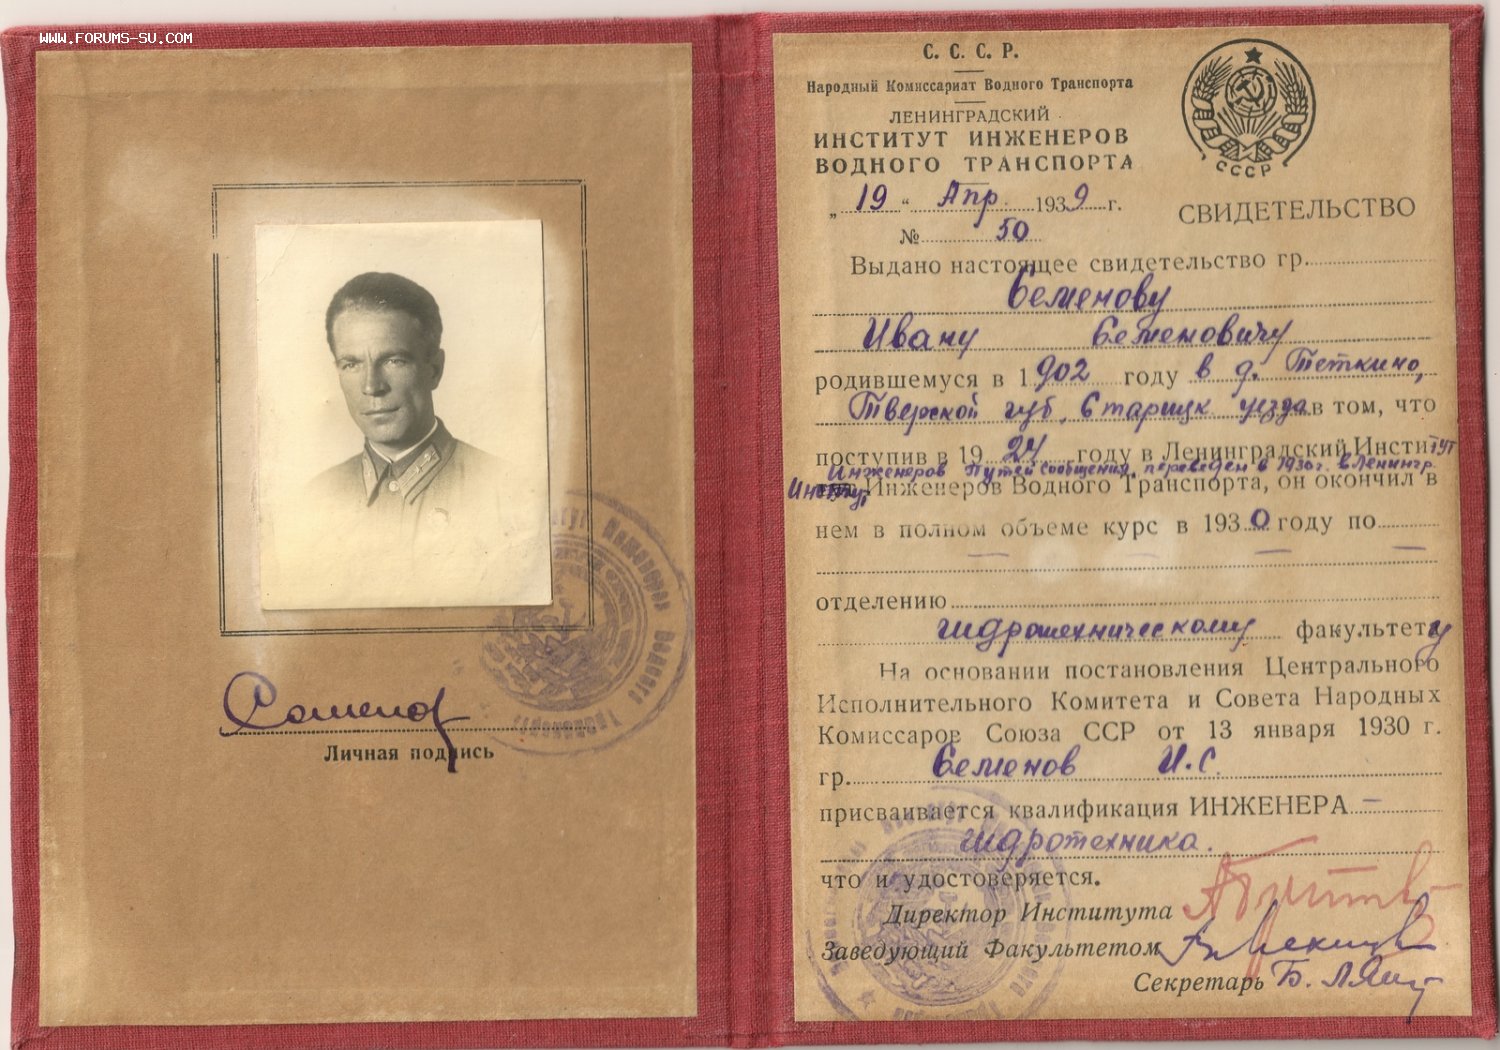 WWW.FORUMS-SU.COM
Личная подпись
С. С. С. Р.
Народный Комиссариат Водного Транспорта
ЛЕНИНГРАДСКИЙ
ИНСТИТУТ ИНЖЕНЕРОВ
ВОДНОГО ТРАНСПОРТА
СССР
„19“ Апр 1939 г.
СВИДЕТЕЛЬСТВО
№ 50
Выдано настоящее свидетельство гр.
Семенову
Ивану Семеновичу
родившемуся в 1902 году в д. Теткино,
Тверской губ, Старицк уезда в том, что
поступив в 1924 году в Ленинградский Институт
Инженеров Путей Сообщения, переведен в 1930 г. в Ленингр.
Инстит. Инженеров Водного Транспорта, он окончил в
нем в полном объеме курс в 1930 году по
отделению
гидротехническому факультету
На основании постановления Центрального
Исполнительного Комитета и Совета Народных
Комиссаров Союза ССР от 13 января 1930 г.
гр. Семенов И.С.
присваивается квалификация ИНЖЕНЕРА –
гидротехника.
что и удостоверяется.
Директор Института
Заведующий Факультетом
Секретарь